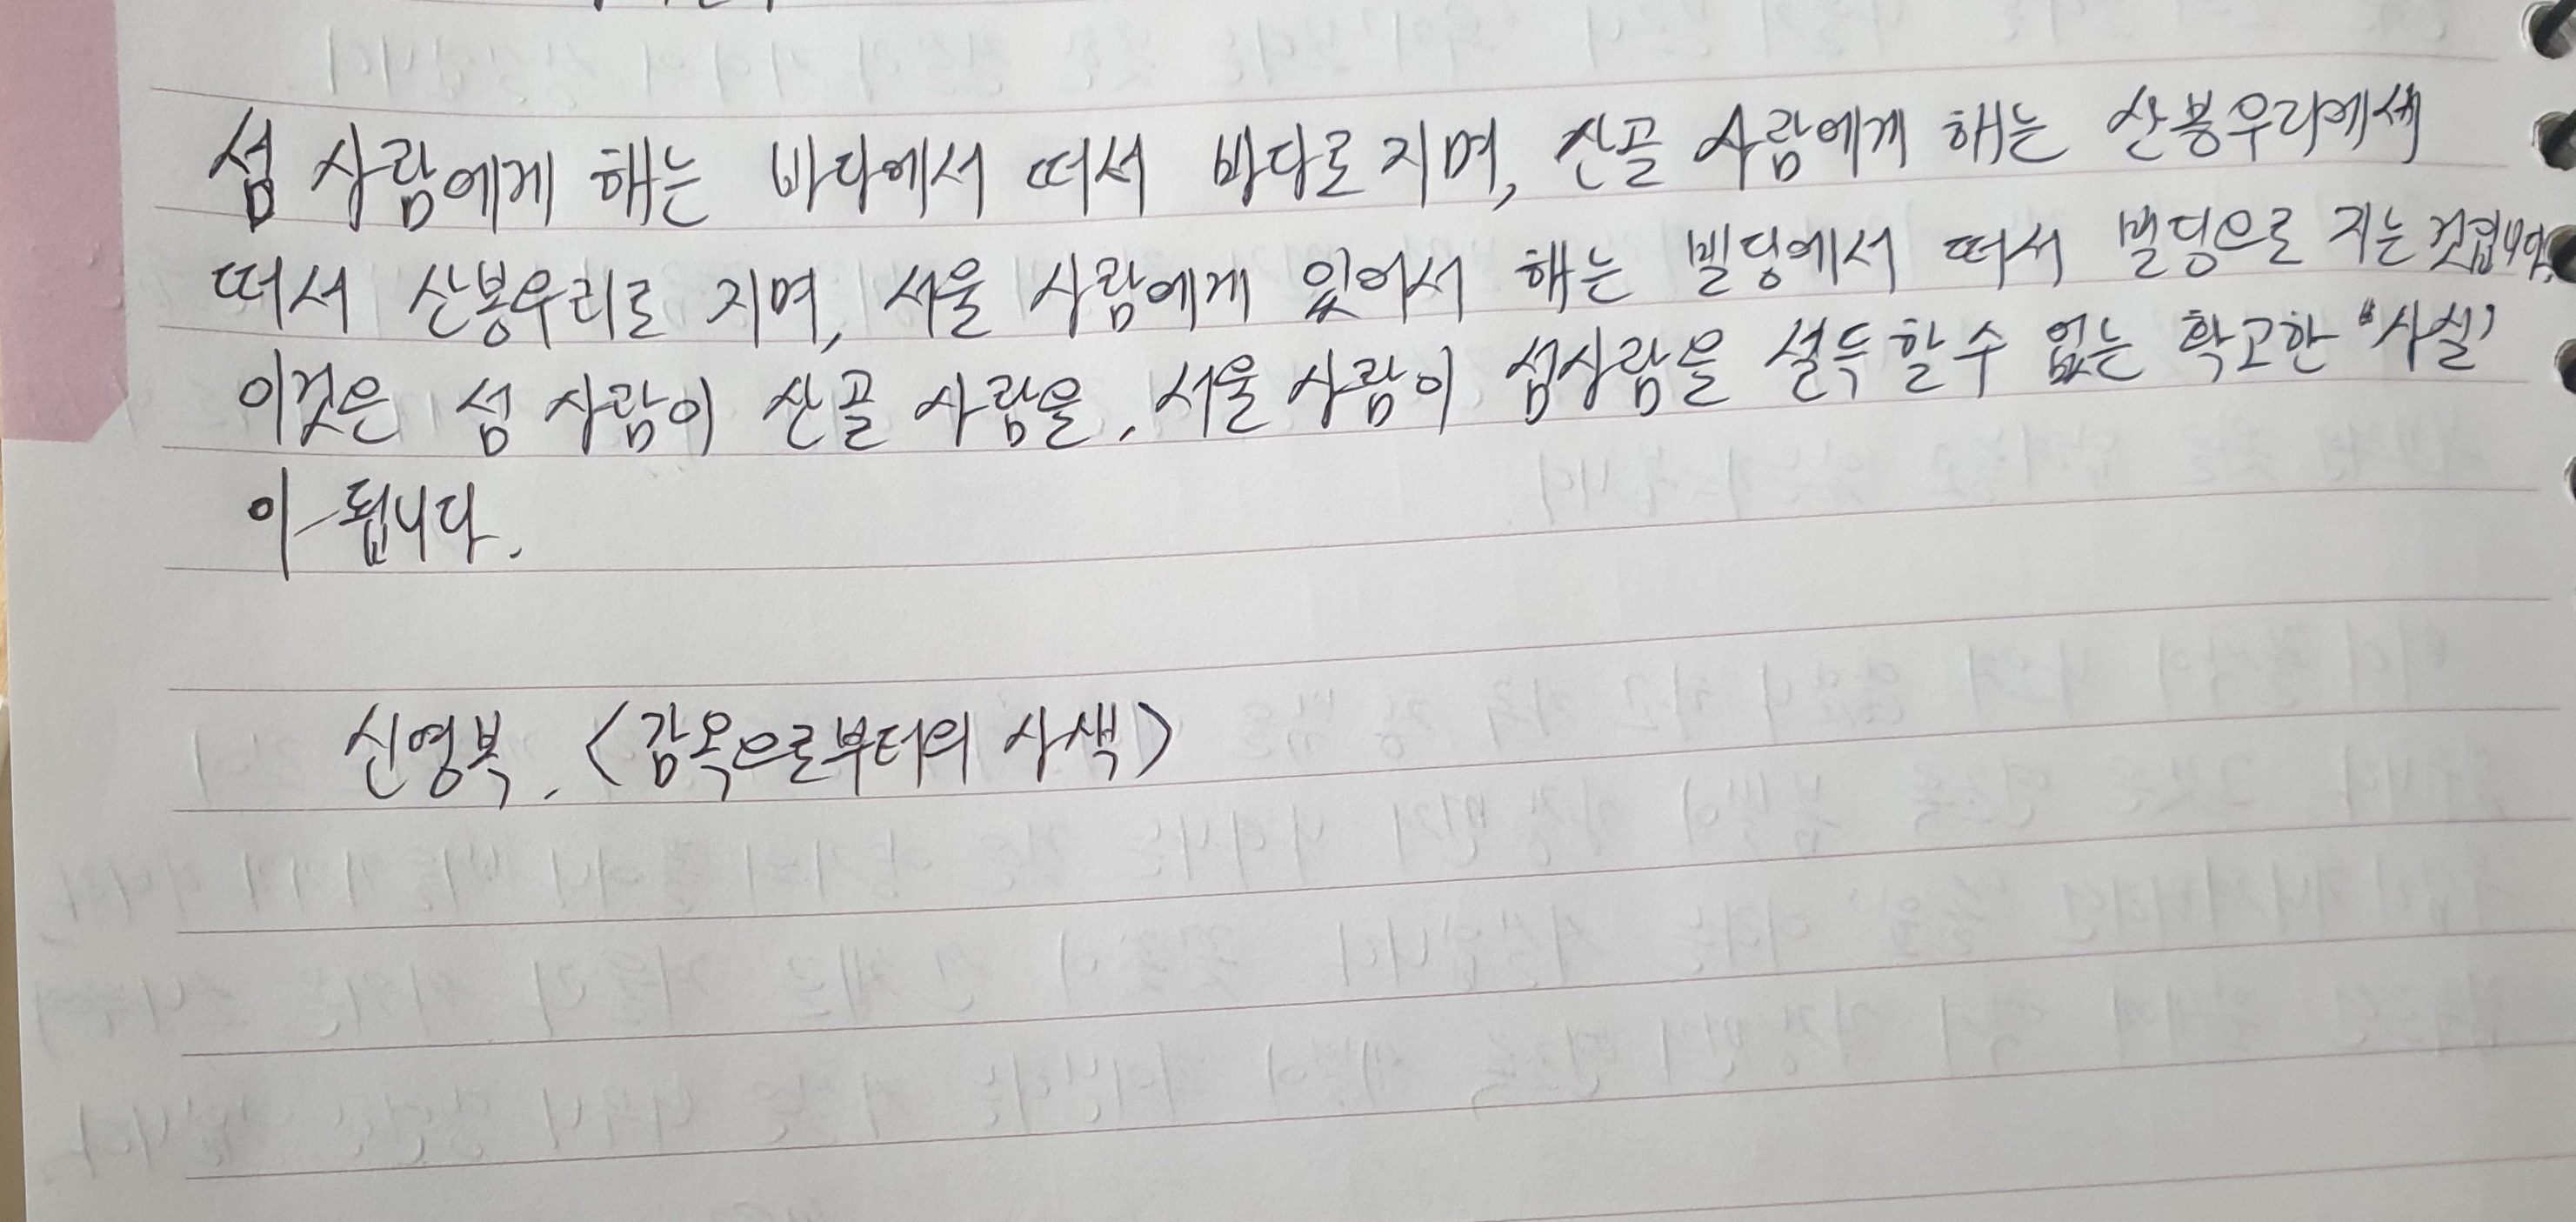 섬 사람에게 해는 바다에서 떠서 바다로 지며, 산골 사람에게 해는 산봉우리에서
떠서 산봉우리로 지며, 서울 사람에게 있어서 해는 빌딩에서 떠서 빌딩으로 지는 것입니다.
이것은 섬 사람이 산골 사람을, 서울 사람이 섬사람을 설득할 수 없는 확고한 '사실'
이 됩니다.
신영복, <감옥으로부터의 사색>